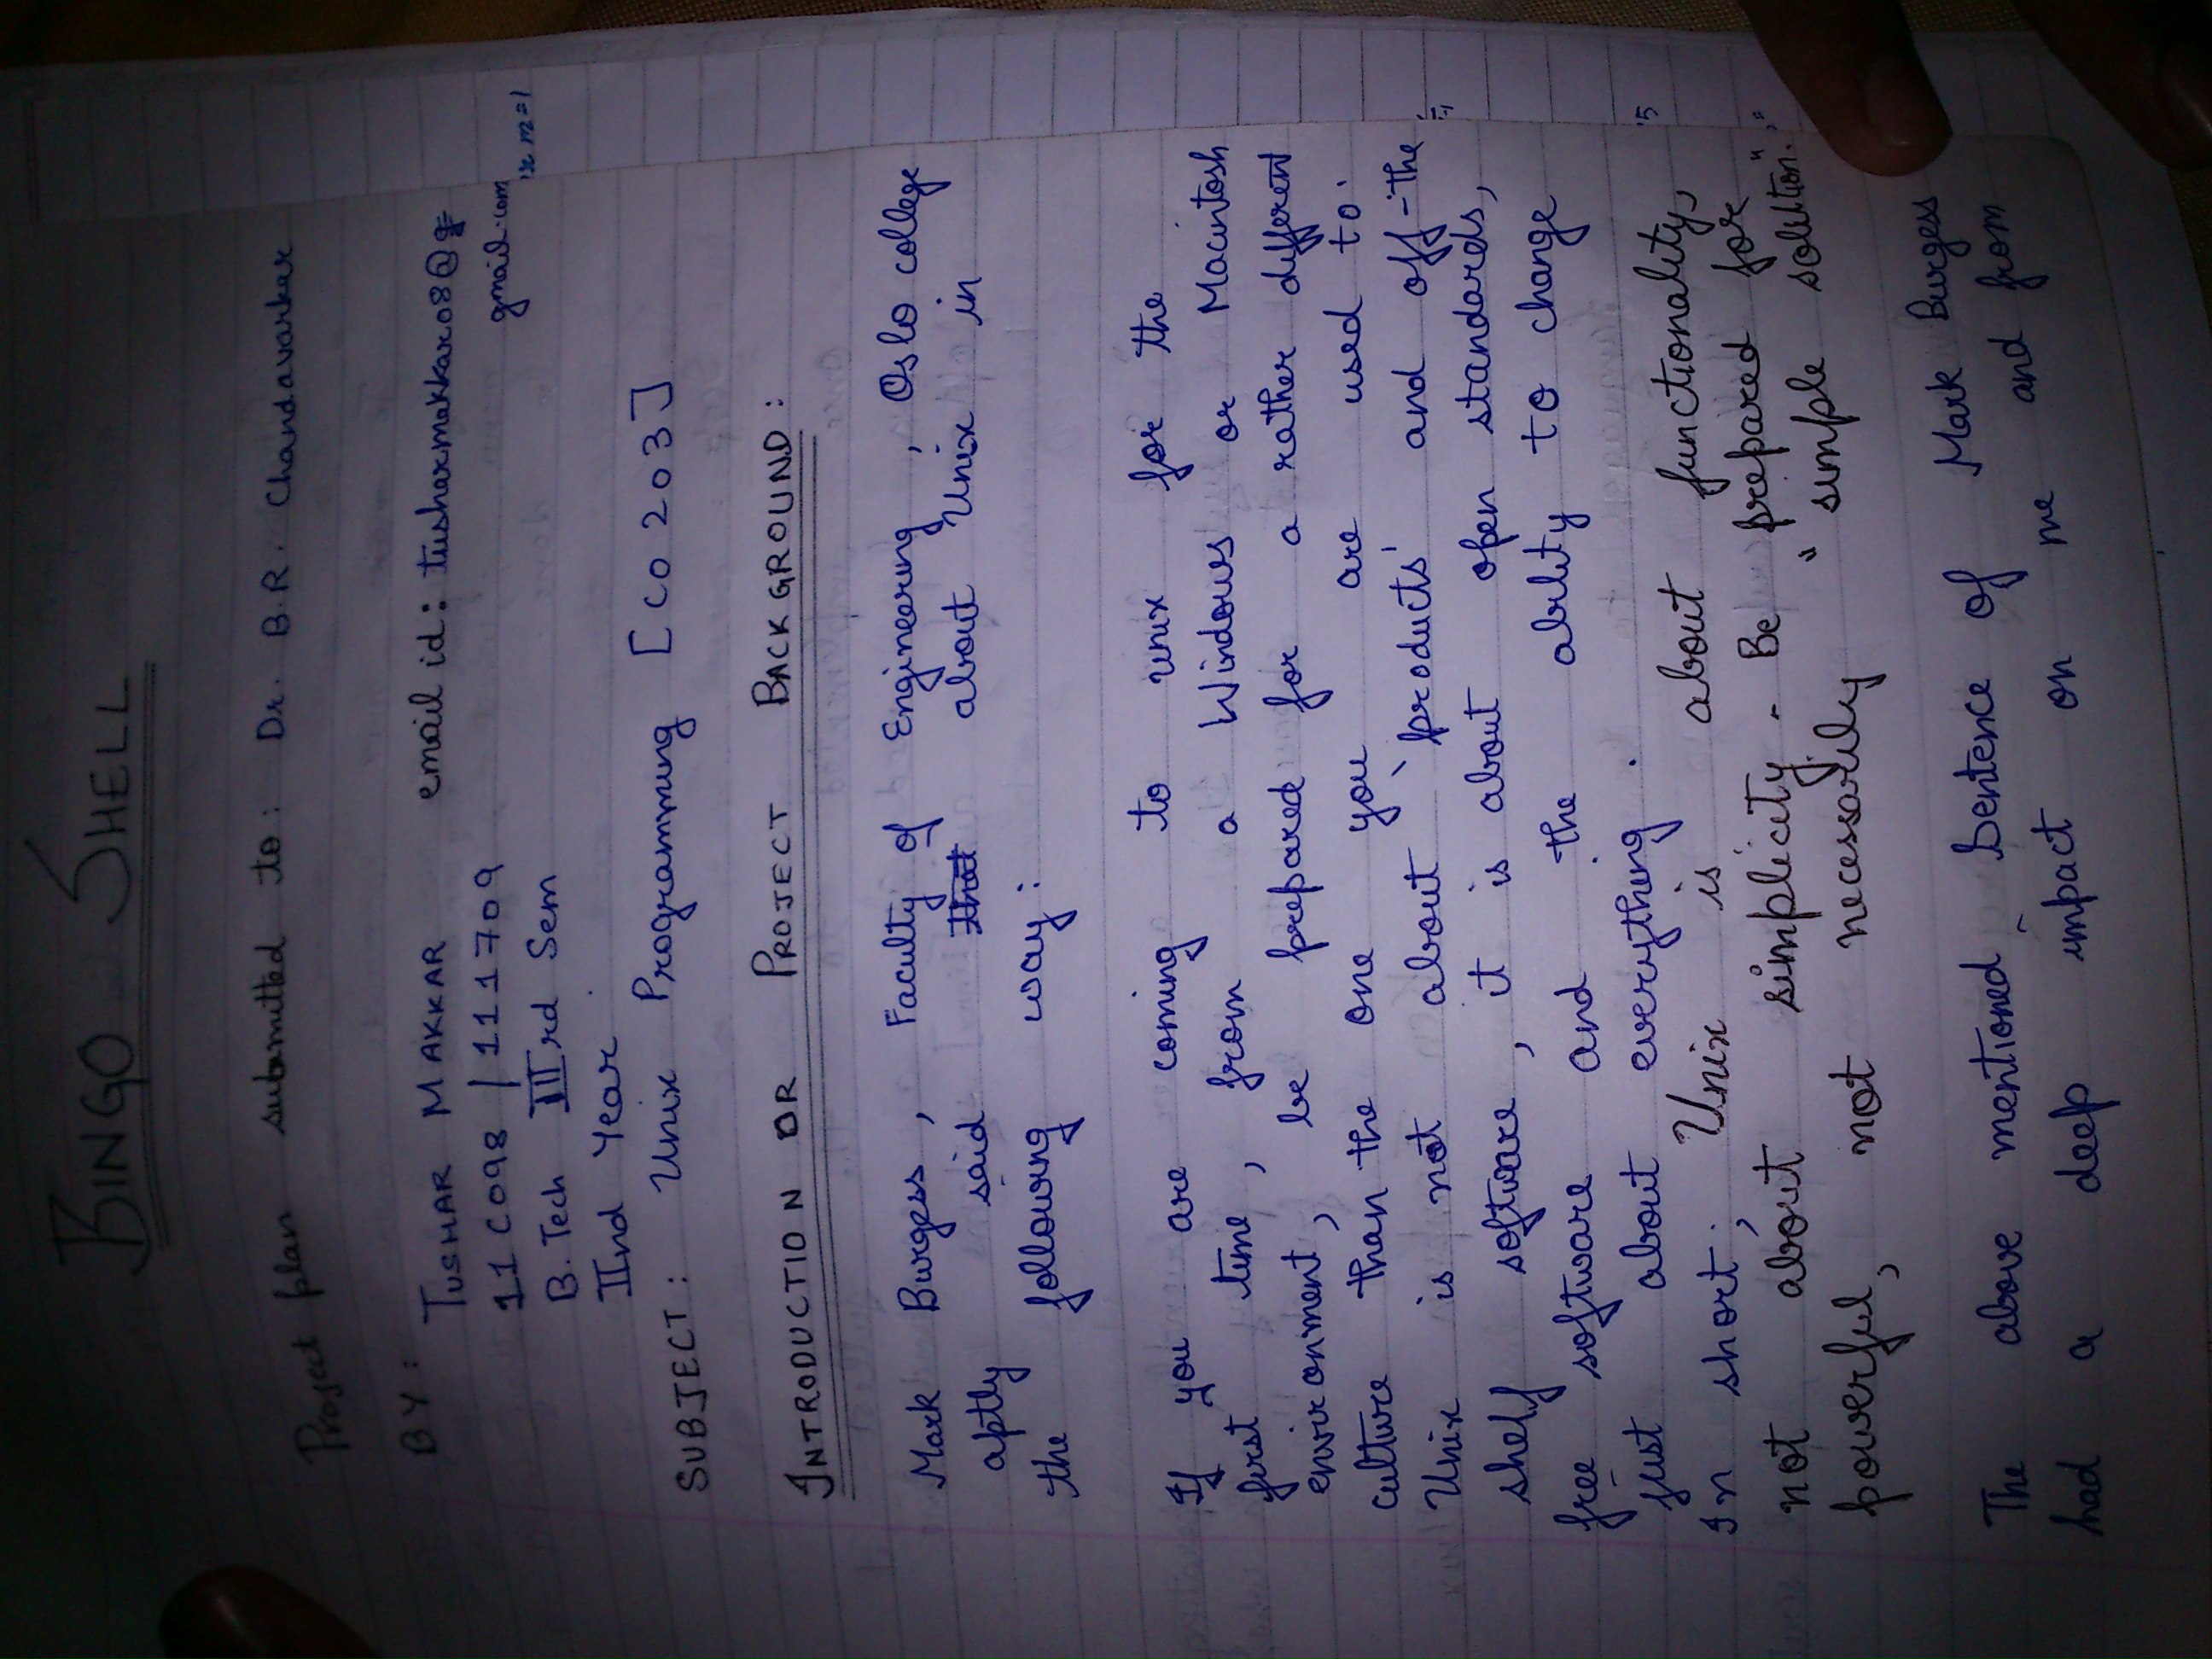 BINGO SHELL
Project plan submitted to: Dr. B.R. Chandavarkar
BY:
TUSHAR MAKKAR email id: tusharmakkar08@
gmail.com
11CO98 / 111709
B.Tech IIIrd Sem
IInd Year
SUBJECT: Unix Programming [CO203]
INTRODUCTION OR PROJECT BACKGROUND:
Mark Burgess, Faculty of Engineering, Oslo college
aptly said that about Unix in
the following way:
If you are coming to unix for the
first time, from a Windows or Macintosh
environment, be prepared for a rather different
culture than the one you are used to.
Unix is not about `products' and off-the
shelf software, it is about open standards,
free software and the ability to change
just about everything.
In short, Unix is about functionality,
not about simplicity. Be prepared for
powerful, not necessarily "simple solution."
The above mentioned sentence of Mark Burgess
had a deep impact on me and from